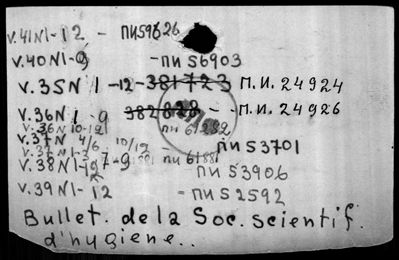 v.41N1-12 - ПИ59626
v.40N1-9 - ПИ56903
v.35N1-12-381723 П.И.24924
v.36N1-9 382828 - П.И.24926
v.36N10-12 ПИ61252
v.37N 4/6 10/12 - ПИ53701
v.37N1-3 ПИ61881
v.38N1-12 7-9 ПИ53906
v.39N1-12 - ПИ52592
Bullet. de la Soc. scientif.
d'hygiene..